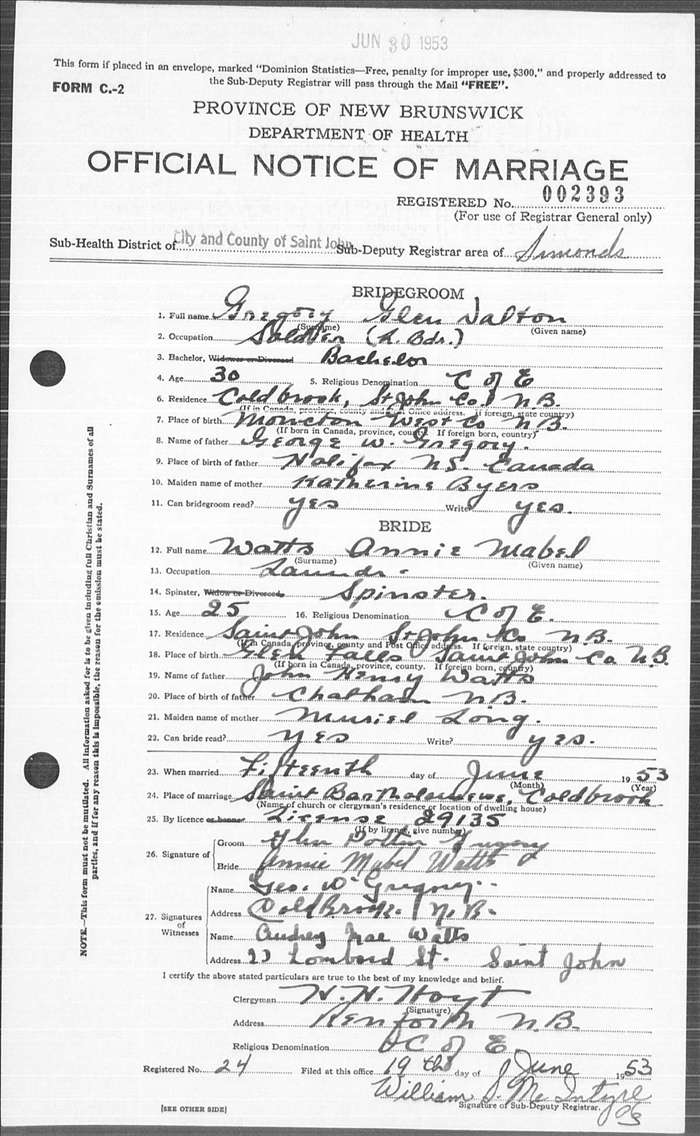 JUN 30 1953
This form if placed in an envelope, marked "Dominion Statistics—Free, penalty for improper use, $300," and properly addressed to
the Sub-Deputy Registrar will pass through the Mail "FREE".
FORM C.-2
PROVINCE OF NEW BRUNSWICK
DEPARTMENT OF HEALTH
OFFICIAL NOTICE OF MARRIAGE
REGISTERED No. 002393
(For use of Registrar General only)
Sub-Health District of City and County of Saint John Sub-Deputy Registrar area of Simonds
BRIDEGROOM
1. Full name Gregory Glen Dalton
(Surname) (Given name)
2. Occupation Soldier (L. Bdr.)
3. Bachelor, Widower or Divorced Bachelor
4. Age 30 5. Religious Denomination C of E
6. Residence Coldbrook, St John Co. N.B.
(If in Canada, province, county and Post Office address. If foreign, state country)
7. Place of birth Moncton West Co N.B.
(If born in Canada, province, county. If foreign born, country)
8. Name of father George W. Gregory.
9. Place of birth of father Halifax N.S. Canada
10. Maiden name of mother Katherine Byers
11. Can bridegroom read? yes Write? yes.
BRIDE
12. Full name Watts Annie Mabel
(Surname) (Given name)
13. Occupation
14. Spinster, Widow or Divorced Spinster.
15. Age 25 16. Religious Denomination C of E.
17. Residence Saint John St John Co N.B.
(If in Canada, province, county and Post Office address. If foreign, state country)
18. Place of birth Glen Falls Saint John Co N.B.
(If born in Canada, province, county. If foreign born, country)
19. Name of father John Henry Watts
20. Place of birth of father Chatham N.B.
21. Maiden name of mother Muriel Long.
22. Can bride read? yes Write? yes.
23. When married Fifteenth day of June 1953
(Month) (Year)
24. Place of marriage Saint Bartholomews, Coldbrook
(Name of church or clergyman's residence or location of dwelling house)
25. By licence or banns License 29135
(If by licence, give number)
26. Signature of Groom Glen Dalton Gregory
Bride Annie Mabel Watts
27. Signatures of Witnesses
Name Geo. W Gregory
Address Coldbrook N.B.
Name Audrey Mae Watts
Address Lombard St. Saint John
I certify the above stated particulars are true to the best of my knowledge and belief.
Clergyman H. H. Hoyt
(Signature)
Address Renforth N.B.
Religious Denomination C of E
Registered No. 24 Filed at this office 19th day of June 1953
William J. McIntyre
Signature of Sub-Deputy Registrar.
[SEE OTHER SIDE]
NOTE.—This form must not be mutilated. All information asked for is to be given including full Christian and Surnames of all
parties, and if for any reason this is impossible, the reason for the omission must be stated.